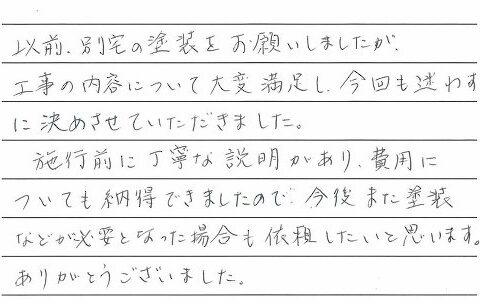 以前、別宅の塗装をお願いしましたが、
工事の内容について大変満足し、今回も迷わず
に決めさせていただきました。
施行前に丁寧な説明があり、費用に
ついても納得できましたので、今後また塗装
などが必要となった場合も依頼したいと思います。
ありがとうございました。